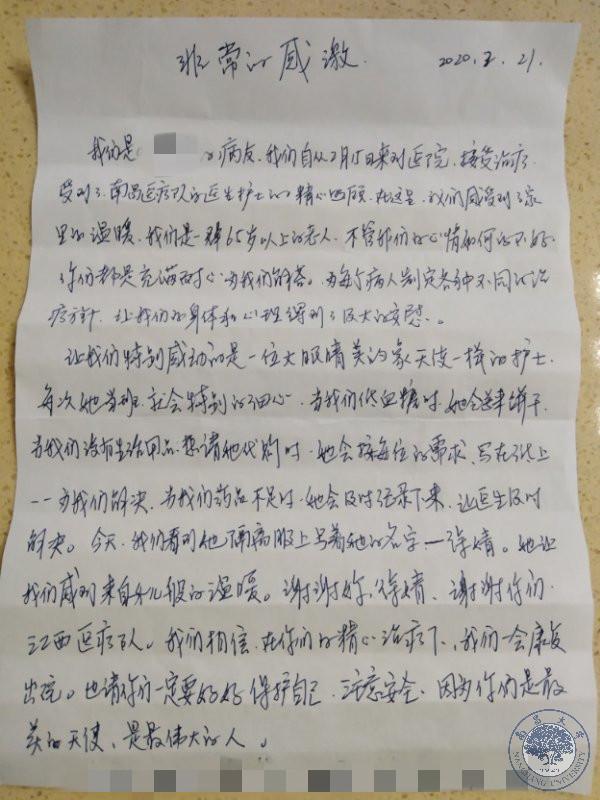 非常的感激.
2020.2.21.
我们是 的病友,我们自从2月15日来到医院,接受治疗
受到了南昌医疗队的医生护士的精心照顾,在这里,我们感受到了家
里的温暖,我们是一群65岁以上的老人,不管我们的心情如何的不好,
你们都是充满耐心为我们解答。为每个病人制定各种不同的治
疗方针,让我们的身体和心理得到了极大的安慰。
让我们特别感动的是一位大眼睛美的象天使一样的护士,
每次她当班,就会特别的细心,当我们低血糖时,她会送来饼干,
当我们没有生活用品,想请她代购时,她会按每位的需求,写在纸上
一一为我们解决,当我们药品不足时,她会及时记录下来,让医生及时
解决。今天,我们看到她隔离服上写着她的名字—徐婧。她让
我们感到来自女儿般的温暖。谢谢妳,徐婧,谢谢你们,
江西医疗队人。我们相信,在你们的精心治疗下,我们一会康复
出院。也请你们一定要好好保护自己,注意安全,因为你们是最
美的天使,是最伟大的人。
南昌大学
NANCHANG UNIVERSITY
1921